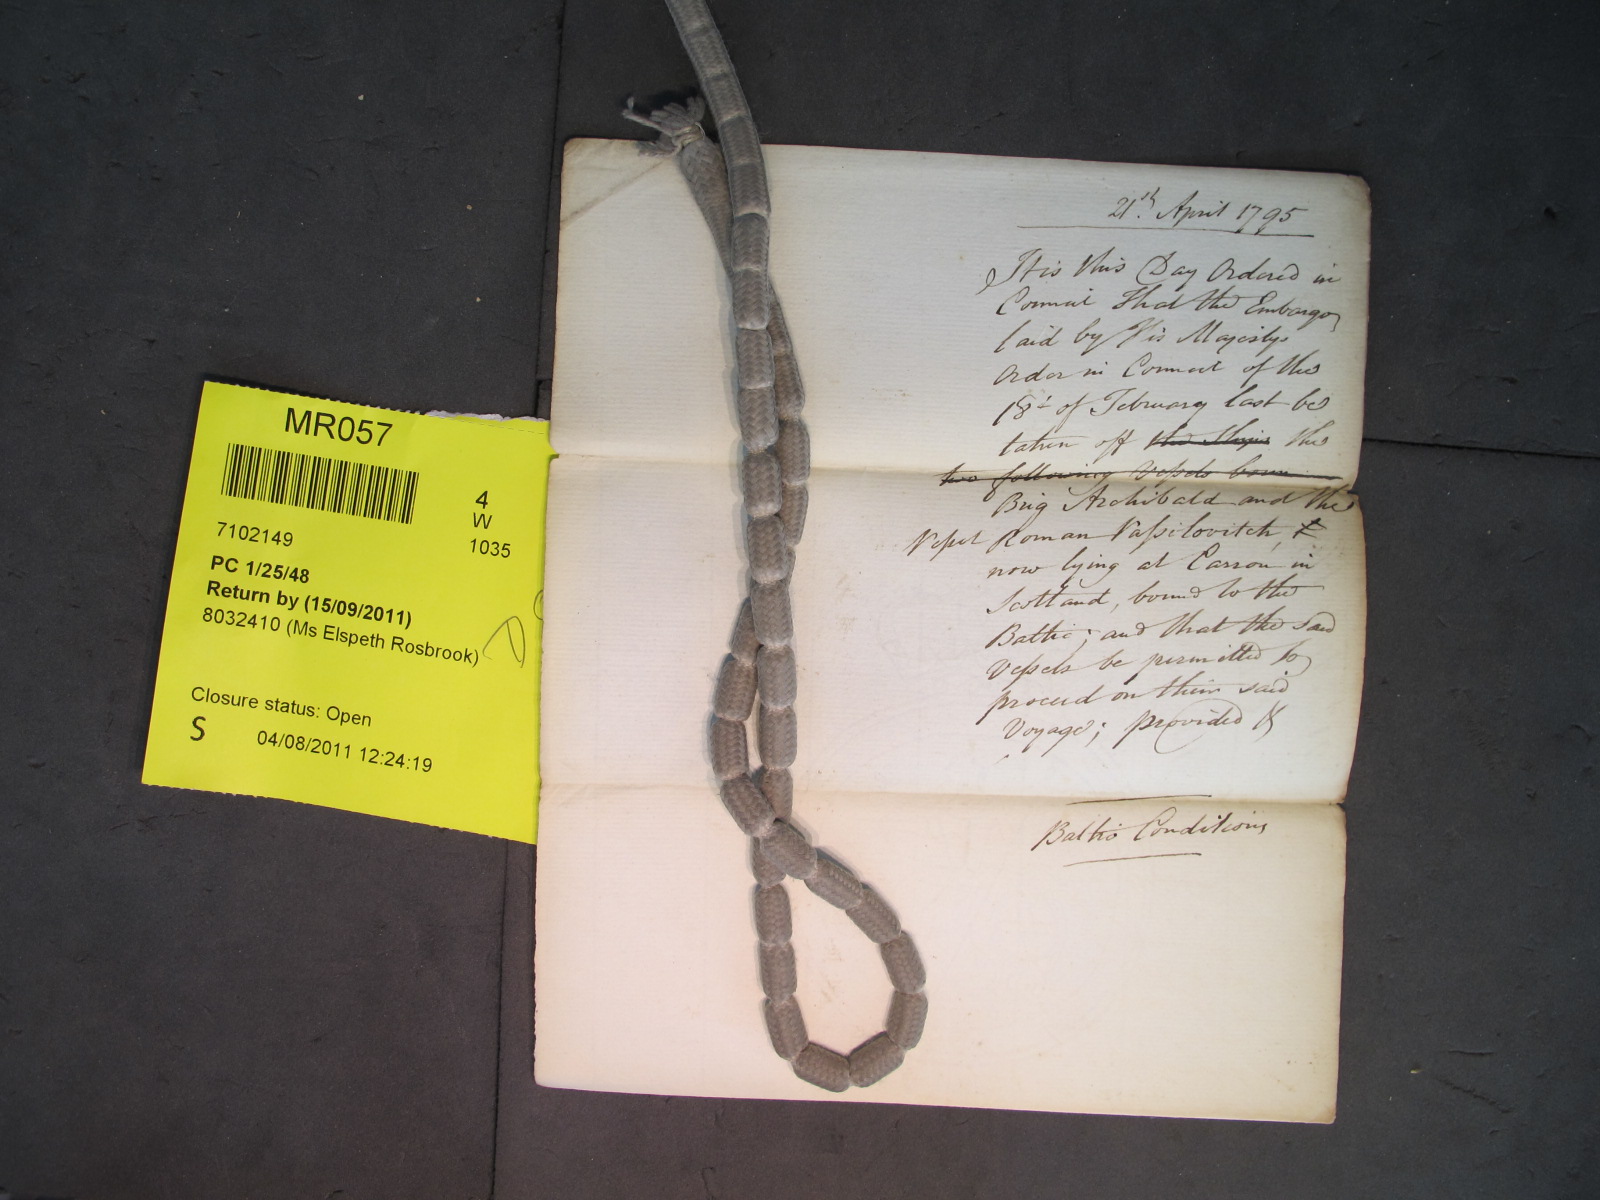 MR057
4
W
1035
7102149
PC 1/25/48
Return by (15/09/2011)
8032410 (Ms Elspeth Rosbrook)
Closure status: Open
S
04/08/2011 12:24:19
21th. April 1795
It is this Day Ordered in
Council That the Embargo
laid by His Majestys
Order in Council of the
18th of February last be
taken off the Ships the
two following Vessels boun
Brig Archibald and the
Vessel Roman Vassilovitch,
now lying at Carron in
Scotland, bound to the
Baltic; and that the said
Vessels be permitted to
proceed on their said
Voyage; provided &
Baltic Conditions